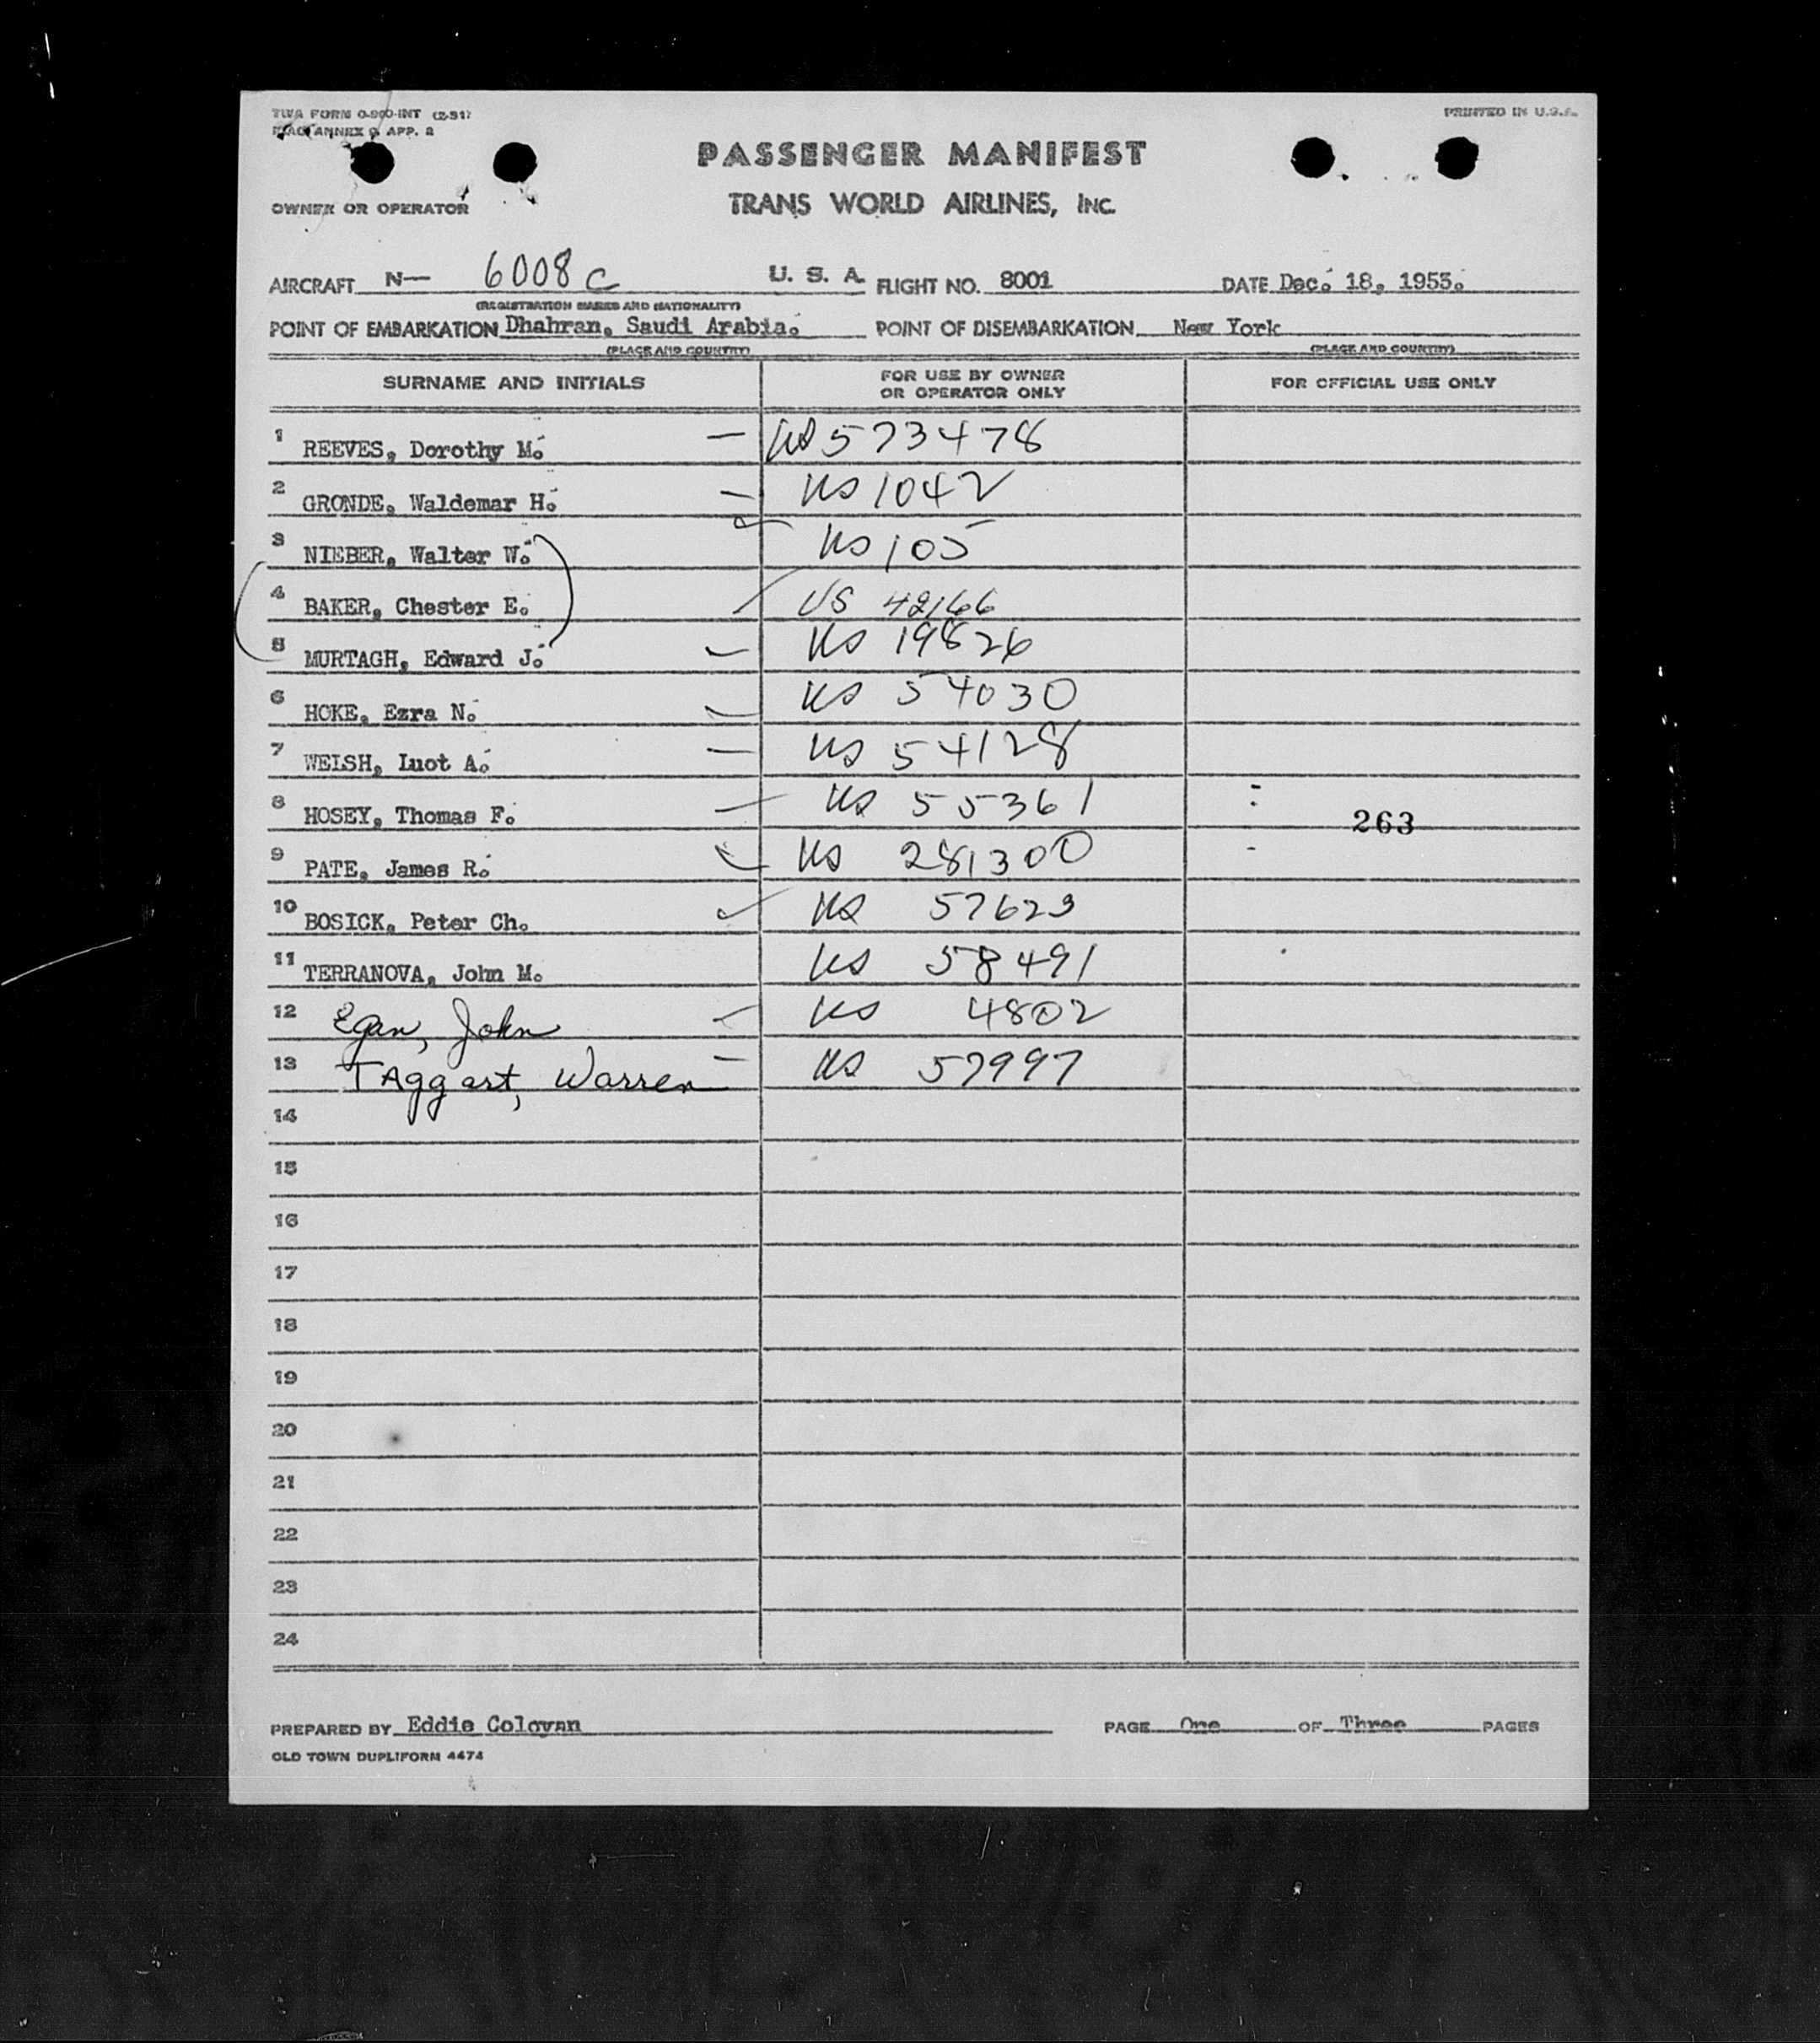 TWA FORM O-900-INT (2-51)
ICAO ANNEX 9 APP. 2
PRINTED IN U.S.A.
PASSENGER MANIFEST
OWNER OR OPERATOR
TRANS WORLD AIRLINES, INC.
AIRCRAFT N— 6008C U. S. A. FLIGHT NO. 8001 DATE Dec. 18, 1953.
(REGISTRATION MARKS AND NATIONALITY)
POINT OF EMBARKATION Dhahran, Saudi Arabia. POINT OF DISEMBARKATION New York
(PLACE AND COUNTRY) (PLACE AND COUNTRY)
SURNAME AND INITIALS FOR USE BY OWNER OR OPERATOR ONLY FOR OFFICIAL USE ONLY
1 REEVES, Dorothy M. — US 573478
2 GRONDE, Waldemar H. US 1042
3 NIEBER, Walter W. US 105
4 BAKER, Chester E. US 42166
5 MURTAGH, Edward J. US 19826
6 HOKE, Ezra N. US 54030
7 WELSH, Luot A. — US 54128
8 HOSEY, Thomas F. — US 55361 263
9 PATE, James R. US 281300
10 BOSICK, Peter Ch. US 57623
11 TERRANOVA, John M. US 58491
12 Egan, John US 4802
13 TAggart, Warren — US 57997
14
15
16
17
18
19
20
21
22
23
24
PREPARED BY Eddie Coloyan PAGE One OF Three PAGES
OLD TOWN DUPLIFORM 4474